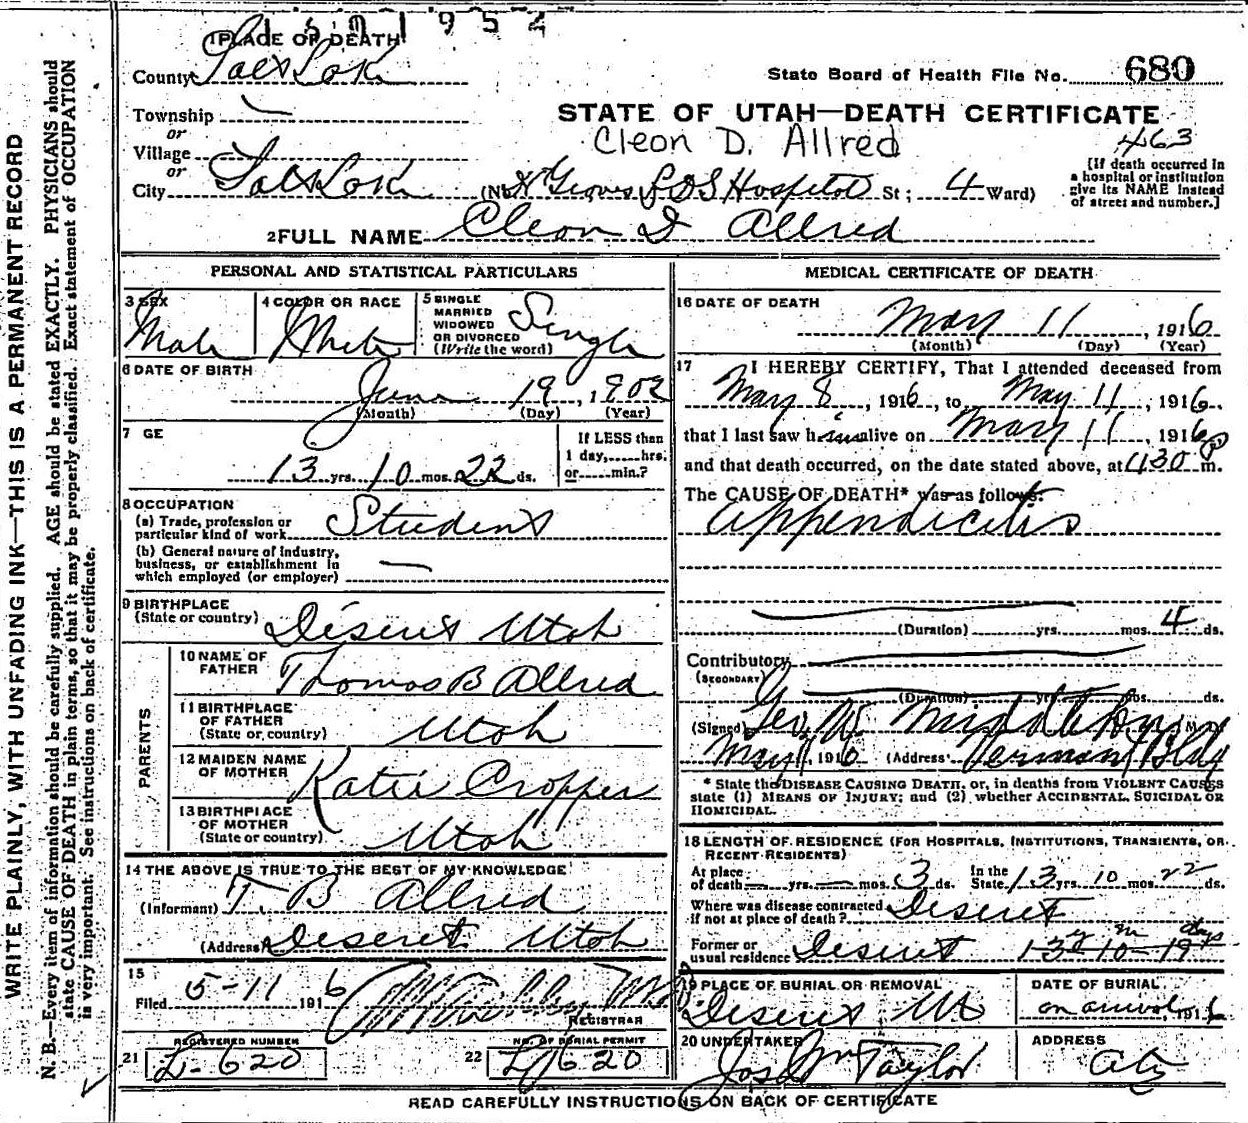 1 PLACE OF DEATH
County Salt Lake
State Board of Health File No. 680
Township —
STATE OF UTAH—DEATH CERTIFICATE
or
Cleon D. Allred
463
Village
or
City Salt Lake (No. Groves L D S Hospital St; 4 Ward)
(If death occurred in
a hospital or institution
give its NAME instead
of street and number.)
2 FULL NAME Cleon D Allred
PERSONAL AND STATISTICAL PARTICULARS
3 SEX Male
4 COLOR OR RACE White
5 SINGLE
MARRIED
WIDOWED
OR DIVORCED
(Write the word) Single
6 DATE OF BIRTH
June 19, 1902
(Month) (Day) (Year)
7 GE
13 yrs. 10 mos. 22 ds.
If LESS than
1 day,......hrs.
or......min.?
8 OCCUPATION
(a) Trade, profession or
particular kind of work Student
(b) General nature of industry,
business, or establishment in
which employed (or employer) —
9 BIRTHPLACE
(State or country) Deseret Utah
PARENTS
10 NAME OF
FATHER Thomas B Allred
11 BIRTHPLACE
OF FATHER
(State or country) Utah
12 MAIDEN NAME
OF MOTHER Katie Cropper
13 BIRTHPLACE
OF MOTHER
(State or country) Utah
14 THE ABOVE IS TRUE TO THE BEST OF MY KNOWLEDGE
(Informant) T. B Allred
(Address) Deseret Utah
15
Filed 5-11 1916
REGISTRAR
REGISTERED NUMBER
21 L-620
NO. OF BURIAL PERMIT
22 620
MEDICAL CERTIFICATE OF DEATH
16 DATE OF DEATH
May 11, 1916
(Month) (Day) (Year)
17 I HEREBY CERTIFY, That I attended deceased from
May 8, 1916, to May 11, 1916.
that I last saw him alive on May 11, 1916
and that death occurred, on the date stated above, at 430 P m.
The CAUSE OF DEATH* was as follows:
Appendicitis
(Duration) yrs. mos. 4 ds.
Contributory
(SECONDARY)
(Duration) yrs. mos. ds.
(Signed) Geo. W. Middleton M. D.
May 11, 1916 (Address) Vermont Bldg
* State the DISEASE CAUSING DEATH, or, in deaths from VIOLENT CAUSES
state (1) MEANS OF INJURY; and (2) whether ACCIDENTAL, SUICIDAL OR
HOMICIDAL.
18 LENGTH OF RESIDENCE (FOR HOSPITALS, INSTITUTIONS, TRANSIENTS, OR
RECENT RESIDENTS)
At place
of death — yrs. — mos. 3 ds.
In the
State 13 yrs. 10 mos. 22 ds.
Where was disease contracted
if not at place of death? Deseret
Former or
usual residence Deseret 13 y 10 m 19 days
19 PLACE OF BURIAL OR REMOVAL
Deseret Ut
DATE OF BURIAL
on arrival 1916
20 UNDERTAKER
Jos Wm Taylor
ADDRESS
City
READ CAREFULLY INSTRUCTIONS ON BACK OF CERTIFICATE
WRITE PLAINLY, WITH UNFADING INK—THIS IS A PERMANENT RECORD
N. B.—Every item of information should be carefully supplied. AGE should be stated EXACTLY. PHYSICIANS should
state CAUSE OF DEATH in plain terms, so that it may be properly classified. Exact statement of OCCUPATION
is very important. See instructions on back of certificate.